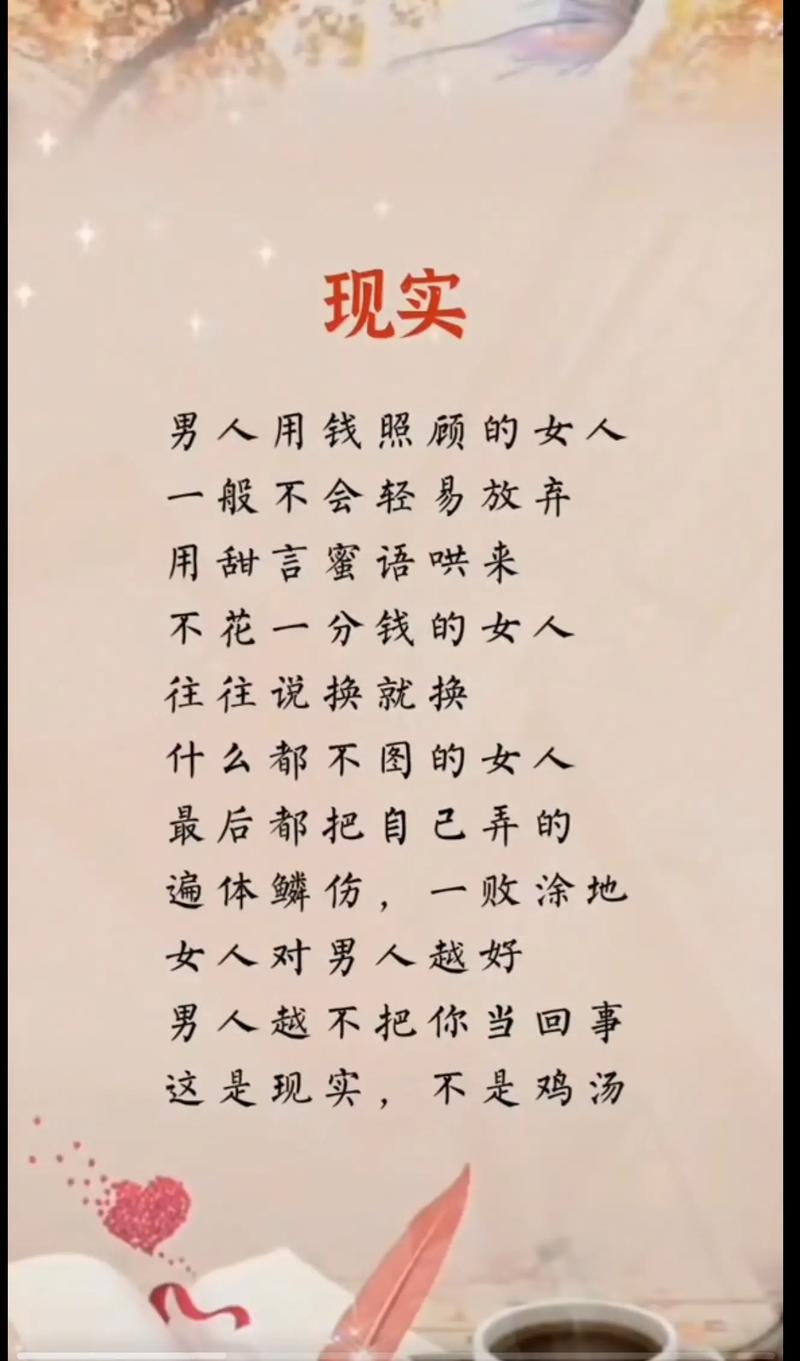 现实
男人用钱照顾的女人
一般不会轻易放弃
用甜言蜜语哄来
不花一分钱的女人
往往说换就换
什么都不图的女人
最后都把自己弄的
遍体鳞伤，一败涂地
女人对男人越好
男人越不把你当回事
这是现实，不是鸡汤